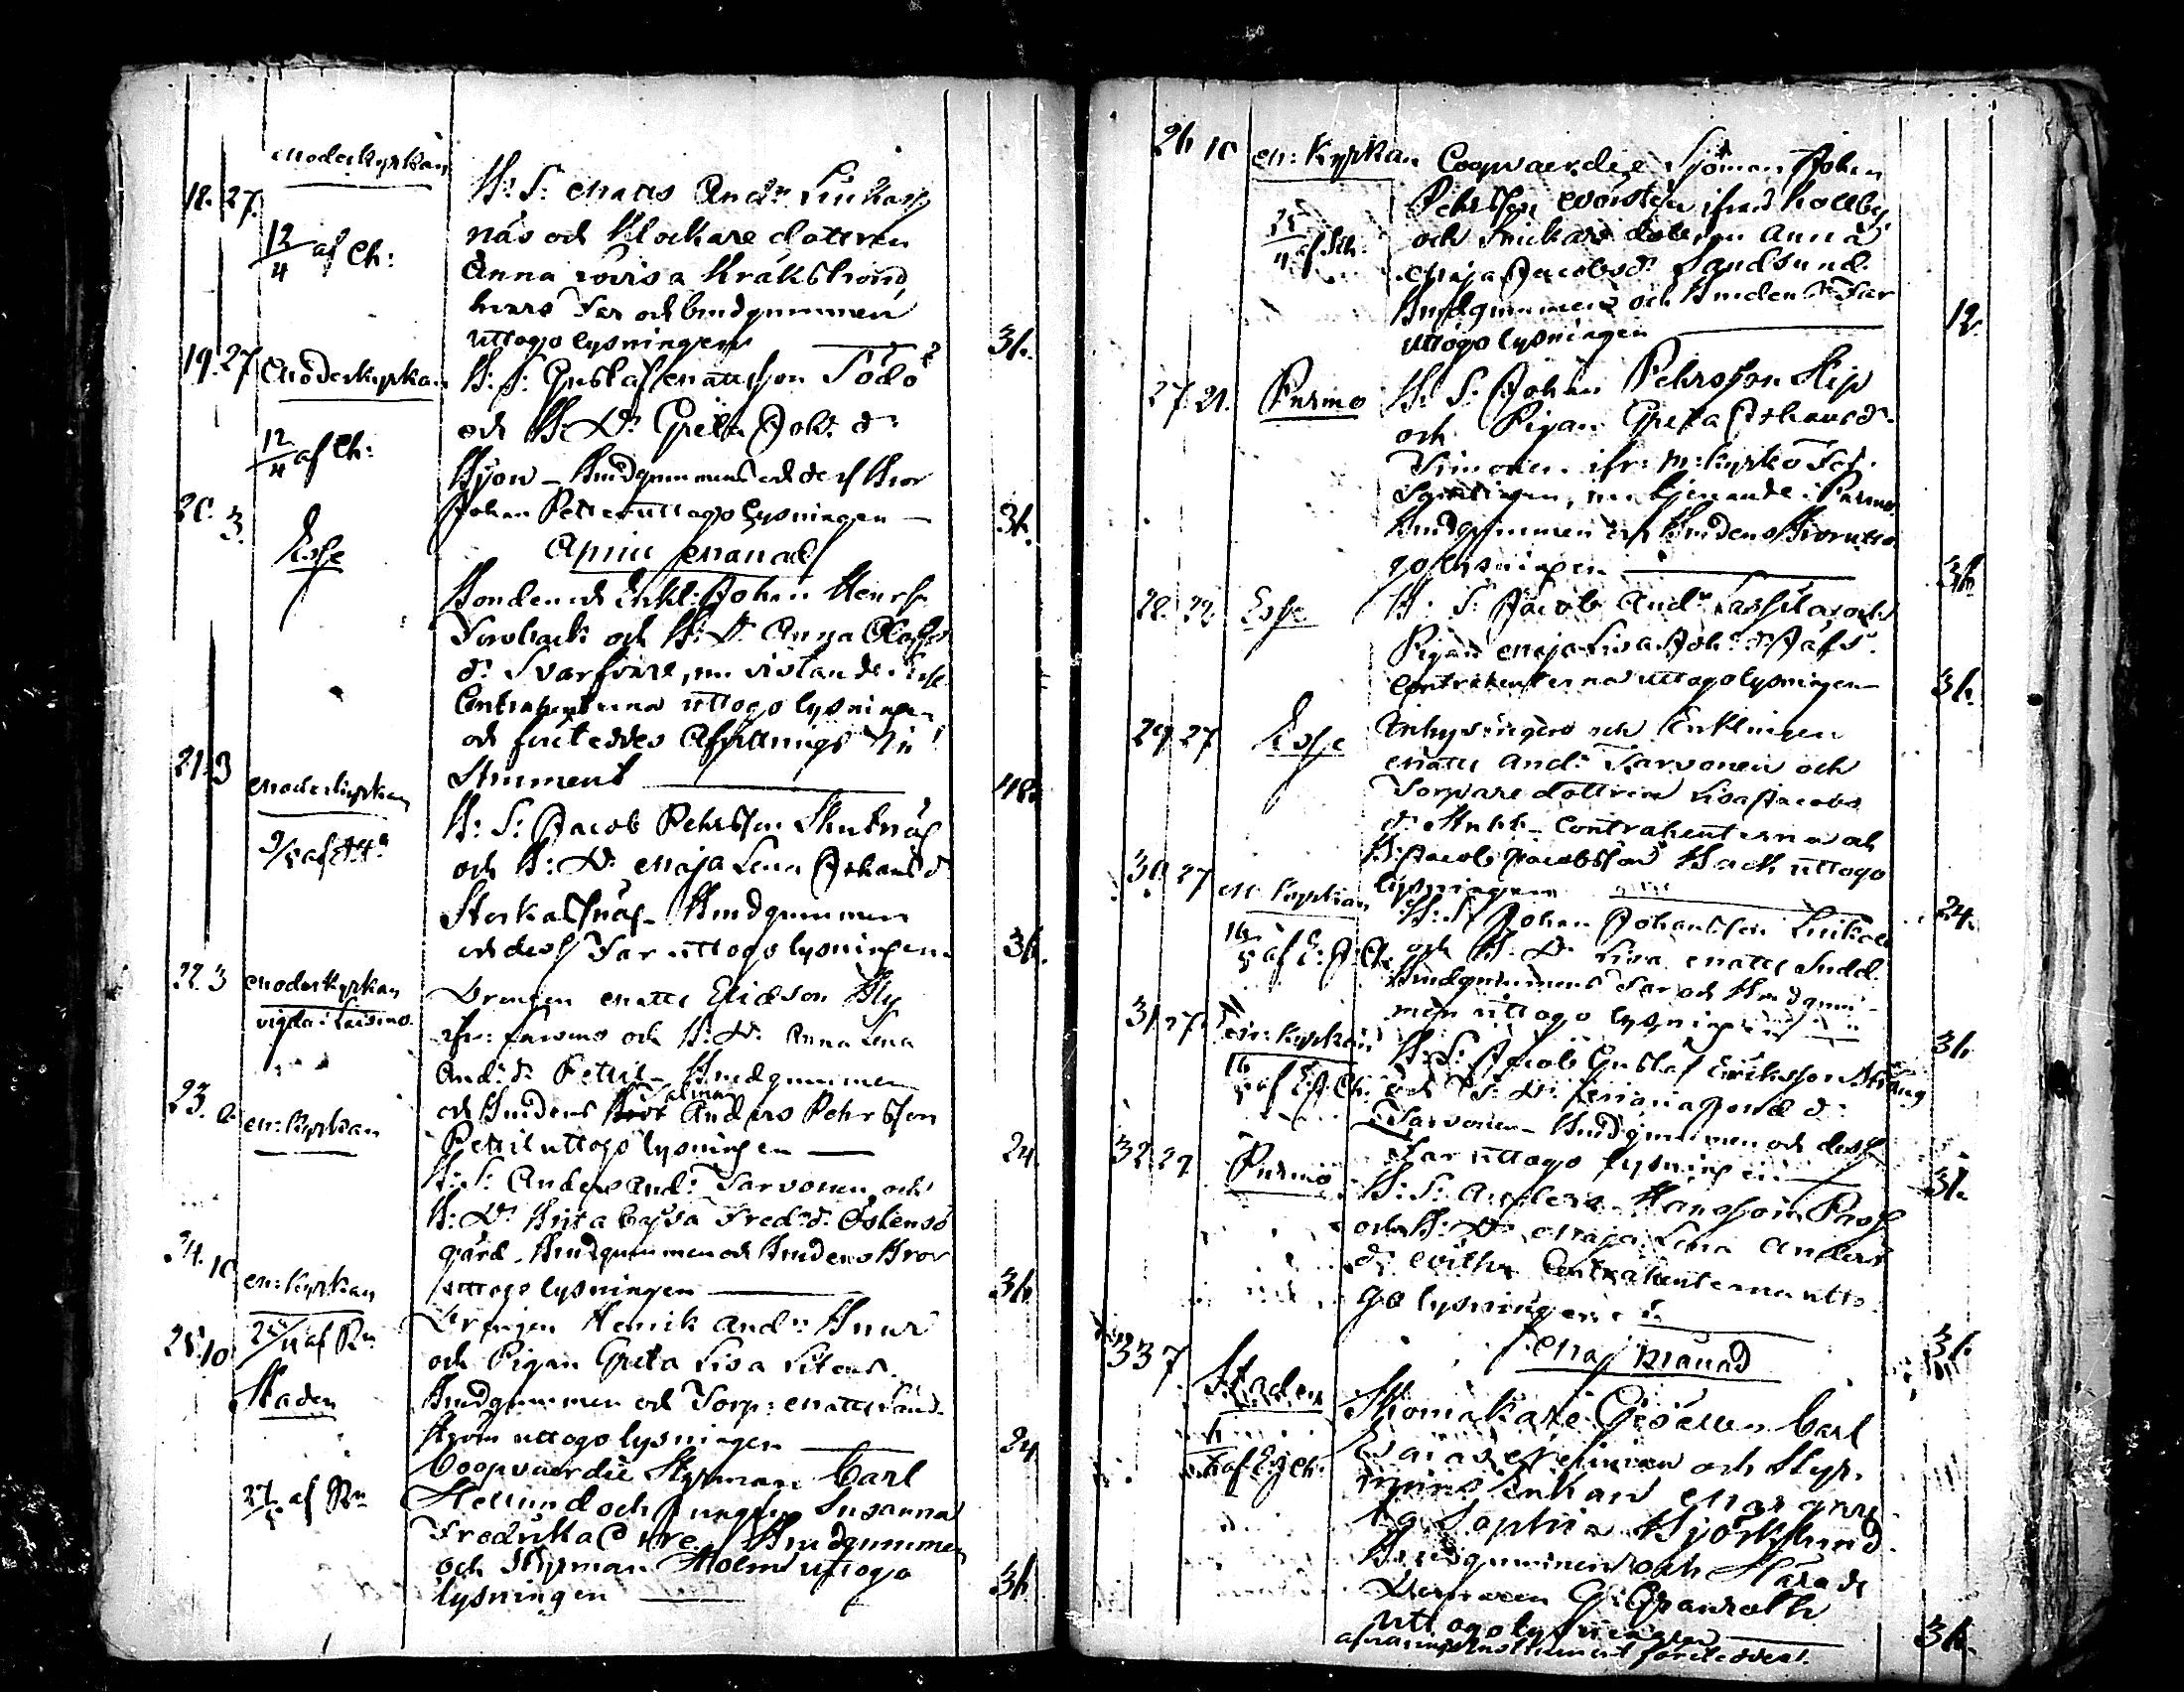 Moderkyrkan
18. 27. B: S: Matts And:n
12/4 af Ch:
näs och Klockare dottren
Anna Lovisa Kråkström,
hvars Far och brudgummen
uttogo lysningen 36.
19. 27 Moderkyrkan B: S: Gustaf Mattsson Södö
och B: D: Greta Joh: d:r
12/4 af Ch:
Björn – Brudgummen och dess Bror
Johan Petter uttogo lysningen – 36.
April Månad
20. 3. Esse
Bonden och Enkl: Johan Henrss:
Forsbacka och B: D: Anna Olofs
d:r Svarfvare, nu vistande i Esse
Contrahenterna uttogo lysningen
och företeddes Afvittrings In
strument 48.
21. 3 Moderkyrkan
B: S: Jacob Pehrsson Skutnäs
9/5 af
och B: D: Maja Lena Johansd:
Storkasknäs – Brudgummen
och dess Far uttogo lysningen. 36.
22. 3 Moderkyrkan
vigda i Larsmo.
Drengen Matts Ericsson Bly
ifr: Larsmo och B: D: Anna Lena
And: d: Pettil – Brudgummen
och Brudens Anders Pehrsson
Pettil uttogo lysningen 24.
23. M: Kyrkan
B: S: Anders And: Tarvonen och
B: D: Brita Cajsa Fred: d: Östensö
gård. Brudgummen och Brudens Bror
uttogo lysningen 36
24. 10 M: Kyrkan
25/4 af R:n
Drengen Henrik And:n Knuz
och Pigan Greta Lisa Litens.
Brudgummen och Torp: Matts Sand
ström uttogo lysningen 24
25. 10 Staden
Coopvaerdie Styrman Carl
27/5 af R:n
Hellund och Jungfru Susanna
Fredrika – Brudgummen
och Styrman Holm uttogo
lysningen 36
26 10 M: Kyrkan Coopvaerdie Sjöman Johan
Pehrsson ifrån Kållby
25/4 af Ch.
och Snickare dottren Anna
Maja Jacobsd: Sandsund.
Brudgummen och Brudens Far
uttogo lysningen 12.
27. 21. Purmo B: S: Johan Pehrsson Slip
och Pigan Greta Johansd:
Simonen ifr: M: Kyrko För
samlingen, nu tjenande i Purmo.
Brudgummen och Brudens Bror utto
go lysningen 36
28. 22. Esse B: S: Jacob And: Lassila och
Pigan Maja Lisa Joh: d:
Contrahenterna uttogo lysningen 36.
29. 27 Esse Inhysingen och Enklingen
Matts And: Tarvonen och
Torpare dottren Lisa Jacobs
d: Stubb – Contrahenterna och
B: Jacob Jacobsson Back uttogo
lysningen 24.
30. 27 M: Kyrkan
B: S: Johan Johansson
16/5 af E: J: Ch: och B: D: Lisa Matts Sudd
Brudgummens Far och Brudgum
men uttogo lysningen 36
31. 27. M: Kyrkan
B: S: Jacob Gustaf Ericksson Strång
16/5 af E: J: Ch: och B: D: Maria Jon d:
Tarvonen – Brudgummen och dess
Far uttogo lysningen 36.
32. 27 Purmo
B: S: Anders Hansson Pass
och B: D: Maja Lena Anders
d: Contrahenterna utto
go lysningen 36.
Maj Månad
33 7 Staden
Skomakare Gesellen Carl
af E: J: Ch: och Styr
mans Enkan Margare
ta Sophia Björklund
Brudgummen och Härads
Domaren G: Granroth
uttogo lysningen 36.
afvittrings Instrument företeddes.